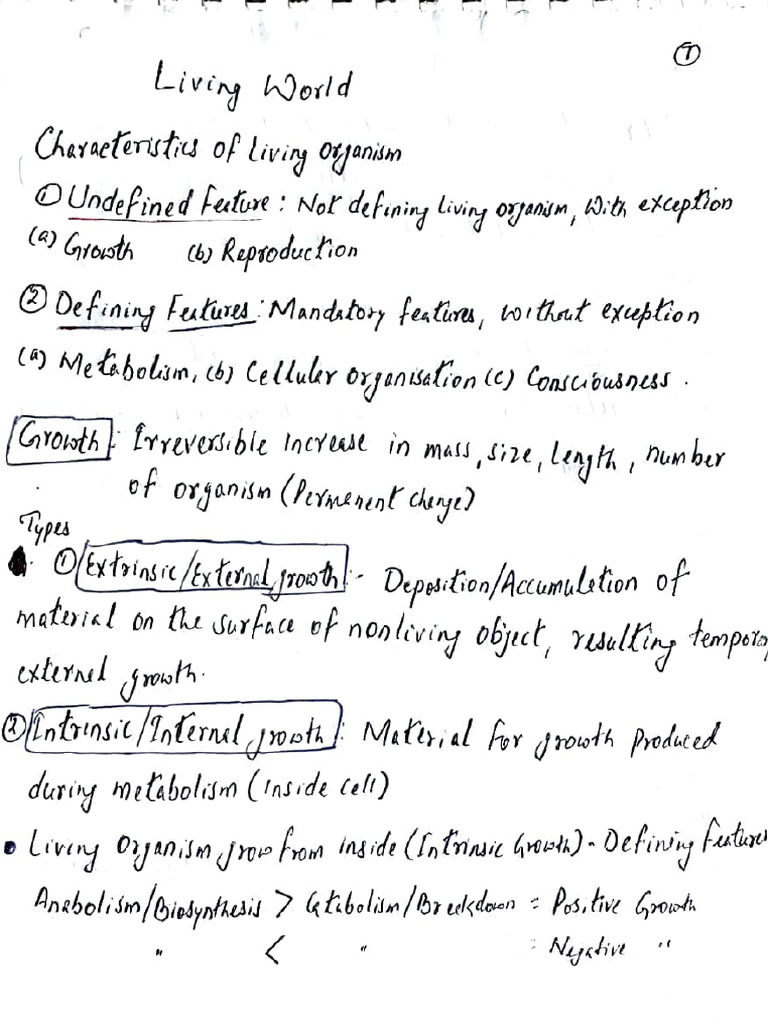 ①
Living World
Characteristics of Living Organism
① Undefined Feature : Not defining Living organism, With exception
(a) Growth (b) Reproduction
② Defining Features : Mandatory features, without exception
(a) Metabolism, (b) Cellular organisation (c) Consciousness .
Growth : Irreversible increase in mass, size, length, number
of organism (Permenent change)
Types
① Extrinsic/External growth :- Deposition/Accumulation of
material on the surface of nonliving object, resulting tempora
external growth.
② Intrinsic/Internal growth : Material for growth produced
during metabolism (Inside cell)
• Living Organism grow from inside (Intrinsic Growth) - Defining features
Anabolism/Biosynthesis > Catabolism/Breakdown = Positive Growth
" < " = Negative "